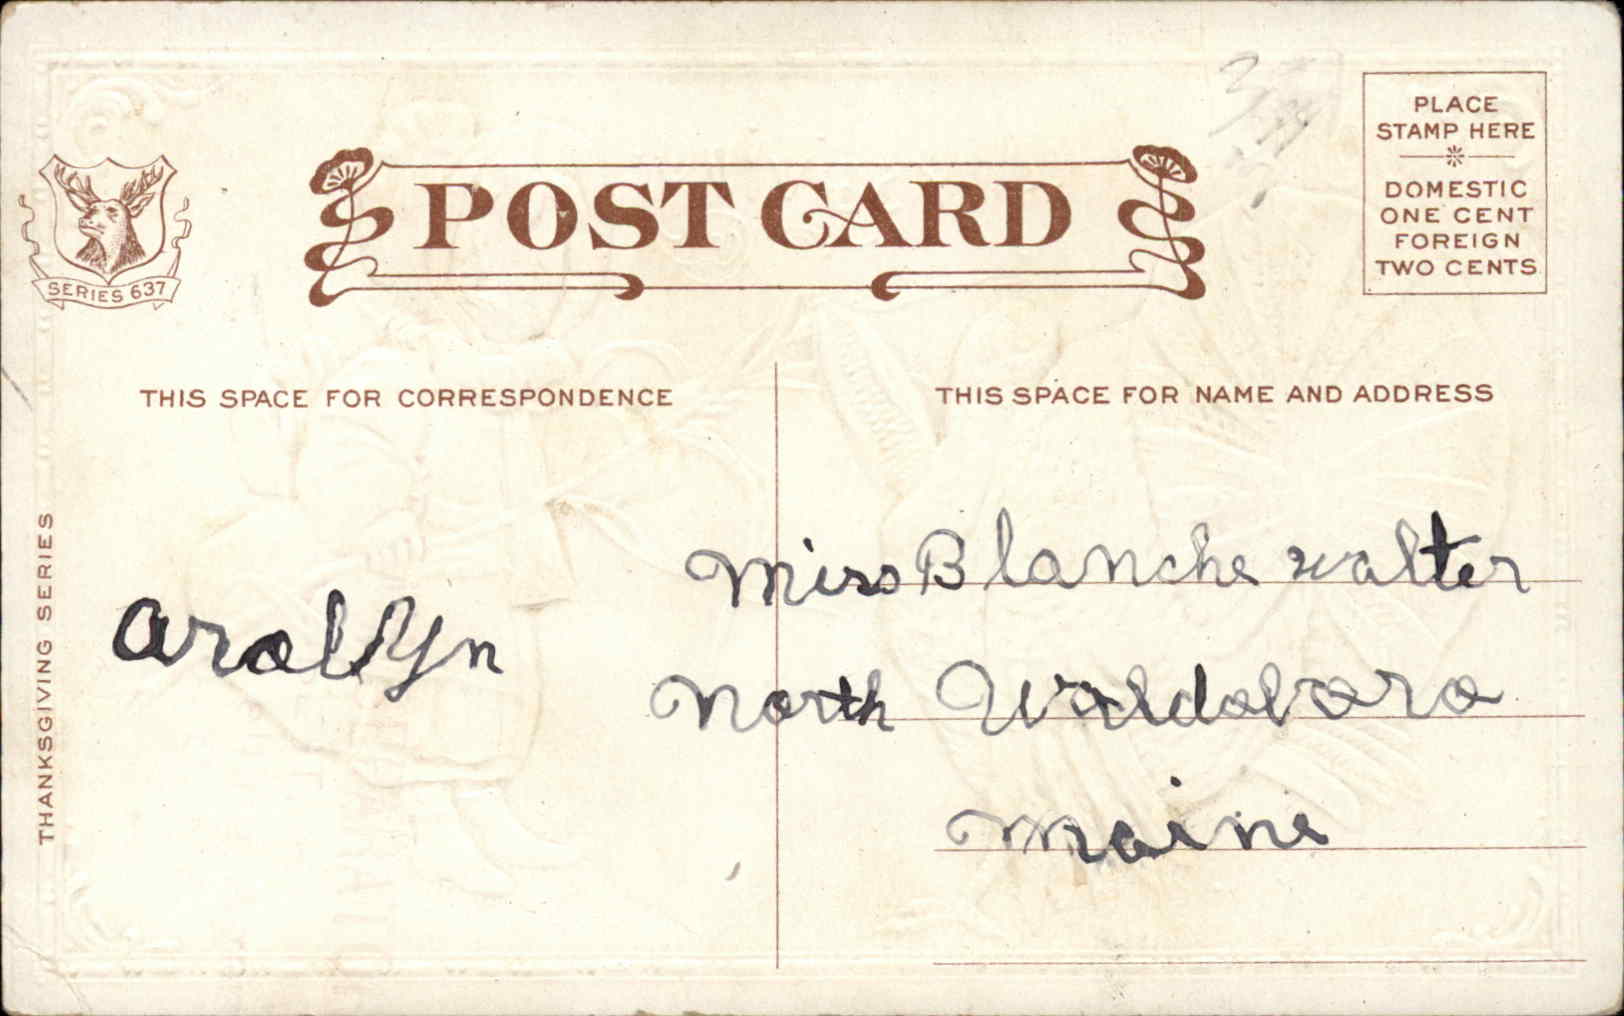 PLACE
STAMP HERE
DOMESTIC
ONE CENT
FOREIGN
TWO CENTS
POST CARD
SERIES 637
THIS SPACE FOR CORRESPONDENCE
THIS SPACE FOR NAME AND ADDRESS
THANKSGIVING SERIES
Arollyn
Miss Blanche walter
North Waldoboro
Maine